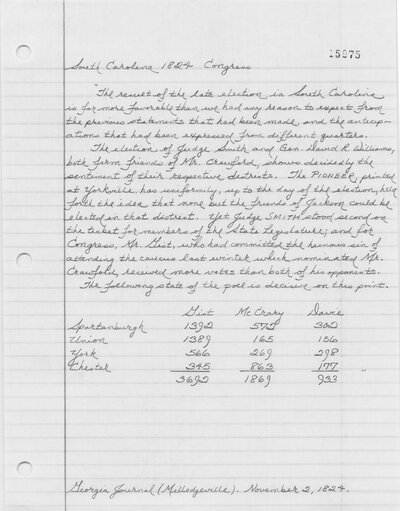 15075
South Carolina 1824 Congress
"The result of the late election in South Carolina
is far more favorable than we had any reason to expect from
the previous statements that had been made, and the anticip-
ations that had been expressed from different quarters.
The election of Judge Smith and Gen. David R. Williams,
both firm friends of Mr. Crawford, shows decidedly the
sentiment of their respective districts. The PIONEER, printed
at Yorkville, has uniformly, up to the day of the election, held
forth the idea that none but the friends of Jackson could be
elected in that district. Yet Judge SMITH stood second on
the ticket for members of the State Legislature; and for
Congress, Mr. Gist, who had committed the heinous sin of
attending the caucus last winter which nominated Mr.
Crawford, received more votes than both of his opponents.
The following state of the poll is decisive on this point.
Gist McCrary Davie
Spartanburgh 1392 572 302
Union 1389 165 156
York 566 269 298
Chester 345 863 177 "
3692 1869 933
Georgia Journal (Milledgeville). November 2, 1824.